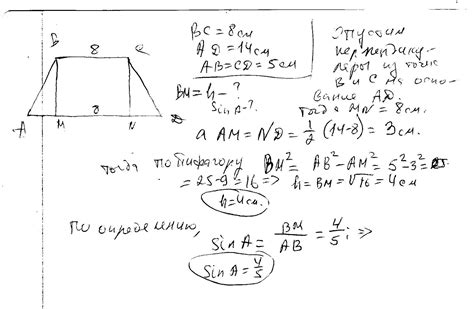 BC = 8 см
AD = 14 см
AB = CD = 5 см
BM = h - ?
Sin A - ?
Опустим
перпендику-
ляры из точек
B и C на осно-
вание AD.
Тогда MN = 8 см.
B 8 C
8
A M N D
а AM = ND = 1/2 (14-8) = 3 см.
тогда по Пифагору BM² = AB² - AM² = 5² - 3² =
= 25 - 9 = 16 => h = BM = √16 = 4 см
h = 4 см.
По определению,
sin A = BM/AB = 4/5; =>
sin A = 4/5